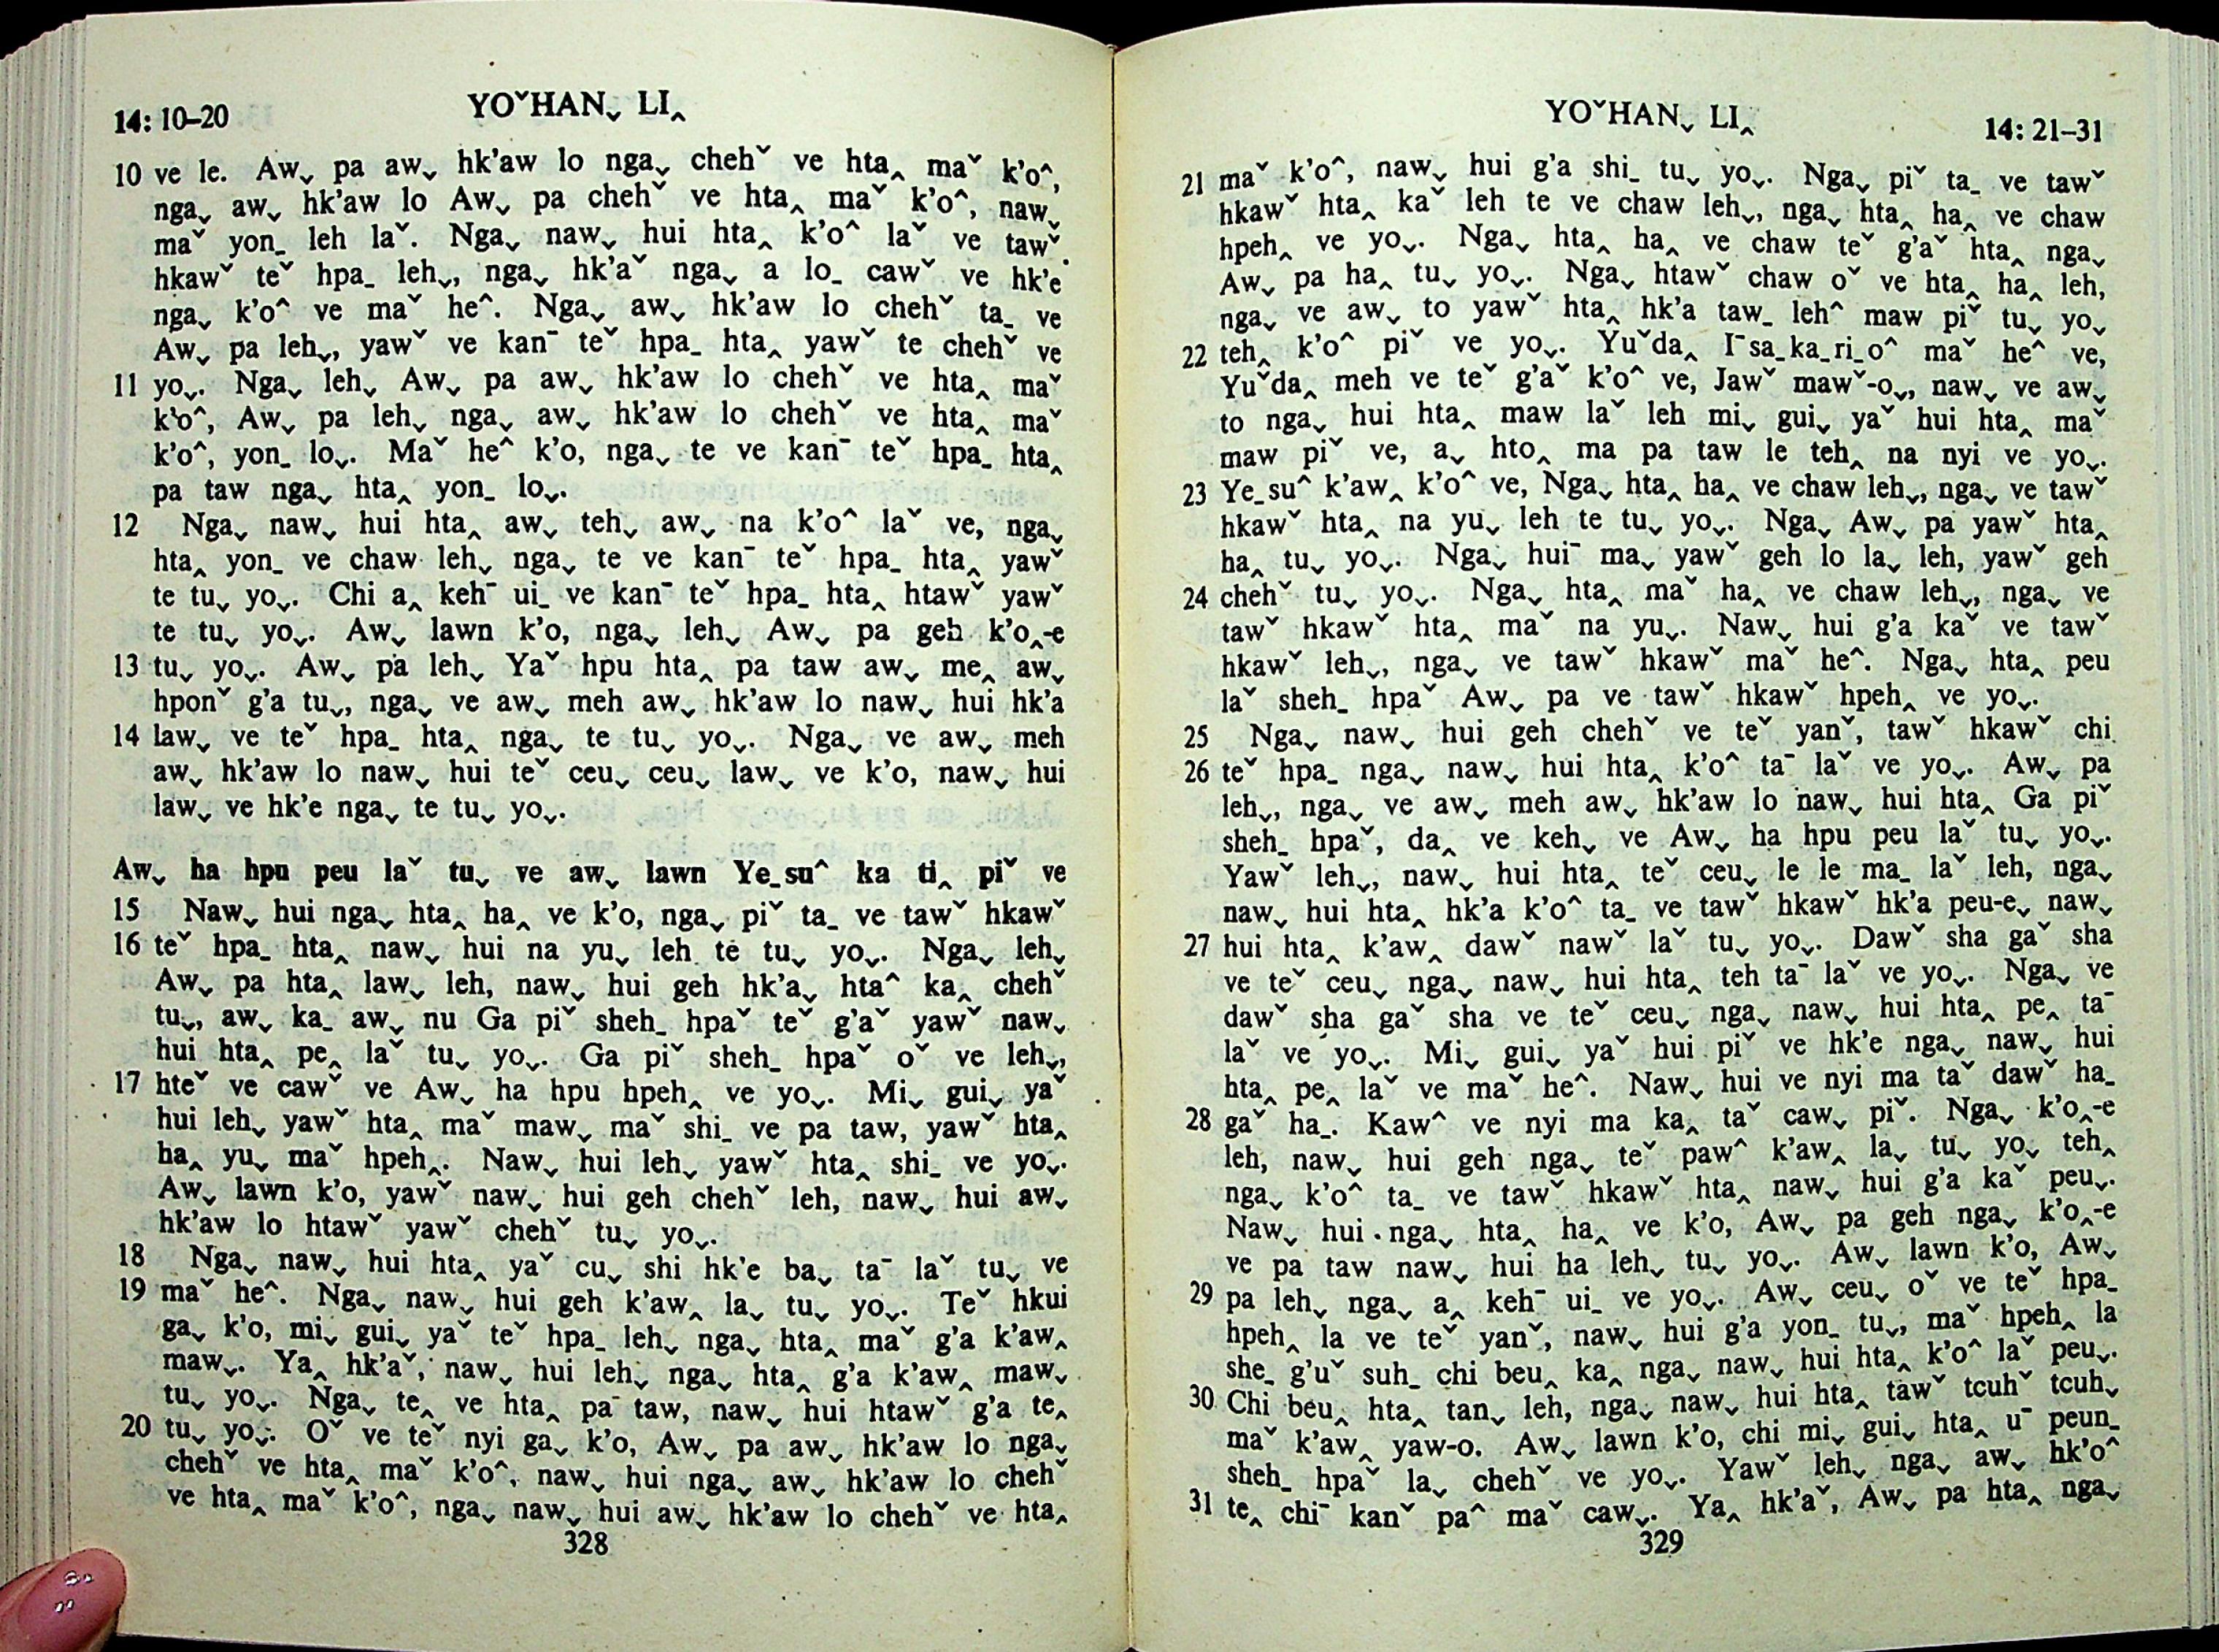 14: 10–20
YOˇHANˬ LI‸
10 ve le. Awˬ pa awˬ hk'aw lo ngaˬ chehˇ ve hta‸ maˇ k'o^,
ngaˬ awˬ hk'aw lo Awˬ pa chehˇ ve hta‸ maˇ k'o^, nawˬ
maˇ yon_ leh laˇ. Ngaˬ nawˬ hui hta‸ k'o^ laˇ ve tawˇ
hkawˇ teˇ hpa_ lehˬ, ngaˬ hk'aˇ ngaˬ a lo_ cawˇ ve hk'e
ngaˬ k'o^ ve maˇ he^. Ngaˬ awˬ hk'aw lo chehˇ ta_ ve
Awˬ pa lehˬ, yawˇ ve kan¯ teˇ hpa_ hta‸ yawˇ te chehˇ ve
11 yoˬ. Ngaˬ lehˬ Awˬ pa awˬ hk'aw lo chehˇ ve hta‸ maˇ
k'o^, Awˬ pa lehˬ ngaˬ awˬ hk'aw lo chehˇ ve hta‸ maˇ
k'o^, yon_ loˬ. Maˇ he^ k'o, ngaˬ te ve kan¯ teˇ hpa_ hta‸
pa taw ngaˬ hta‸ yon_ loˬ.
12 Ngaˬ nawˬ hui hta‸ awˬ tehˬ awˬ na k'o^ laˇ ve, ngaˬ
hta‸ yon_ ve chaw lehˬ ngaˬ te ve kan¯ teˇ hpa_ hta‸ yawˇ
te tuˬ yoˬ. Chi a‸ keh¯ ui_ ve kan¯ teˇ hpa_ hta‸ htawˇ yawˇ
te tuˬ yoˬ. Awˬ lawn k'o, ngaˬ lehˬ Awˬ pa geh k'o‸-e
13 tuˬ yoˬ. Awˬ pa lehˬ Yaˇ hpu hta‸ pa taw awˬ me‸ awˬ
hponˇ g'a tuˬ, ngaˬ ve awˬ meh awˬ hk'aw lo nawˬ hui hk'a
14 lawˬ ve teˇ hpa_ hta‸ ngaˬ te tuˬ yoˬ. Ngaˬ ve awˬ meh
awˬ hk'aw lo nawˬ hui teˇ ceuˬ ceuˬ lawˬ ve k'o, nawˬ hui
lawˬ ve hk'e ngaˬ te tuˬ yoˬ.
Awˬ ha hpu peu laˇ tuˬ ve awˬ lawn Ye_su^ ka ti‸ piˇ ve
15 Nawˬ hui ngaˬ hta‸ ha‸ ve k'o, ngaˬ piˇ ta_ ve tawˇ hkawˇ
16 teˇ hpa_ hta‸ nawˬ hui na yuˬ leh te tuˬ yoˬ. Ngaˬ lehˬ
Awˬ pa hta‸ lawˬ leh, nawˬ hui geh hk'aˬ hta^ ka‸ chehˇ
tuˬ, awˬ ka_ awˬ nu Ga piˇ sheh_ hpaˇ teˇ g'aˇ yawˇ nawˬ
hui hta‸ pe‸ laˇ tuˬ yoˬ. Ga piˇ sheh_ hpaˇ oˇ ve lehˬ,
17 hteˇ ve cawˇ ve Awˬ ha hpu hpeh‸ ve yoˬ. Miˬ guiˬ yaˇ
hui lehˬ yawˇ hta‸ maˇ mawˬ maˇ shi_ ve pa taw, yawˇ hta‸
ha‸ yuˬ maˇ hpeh‸. Nawˬ hui lehˬ yawˇ hta‸ shi_ ve yoˬ.
Awˬ lawn k'o, yawˇ nawˬ hui geh chehˇ leh, nawˬ hui awˬ
hk'aw lo htawˇ yawˇ chehˇ tuˬ yoˬ.
18 Ngaˬ nawˬ hui hta‸ yaˇ cuˬ shi hk'e baˬ ta¯ laˇ tuˬ ve
19 maˇ he^. Ngaˬ nawˬ hui geh k'aw‸ laˬ tuˬ yoˬ. Teˇ hkui
gaˬ k'o, miˬ guiˬ yaˇ teˇ hpa_ lehˬ ngaˬ hta‸ maˇ g'a k'aw‸
mawˬ. Ya‸ hk'aˇ, nawˬ hui lehˬ ngaˬ hta‸ g'a k'aw‸ mawˬ
tuˬ yoˬ. Ngaˬ te‸ ve hta‸ pa¯ taw, nawˬ hui htawˇ g'a te‸
20 tuˬ yoˬ. Oˇ ve teˇ nyi gaˬ k'o, Awˬ pa awˬ hk'aw lo ngaˬ
chehˇ ve hta‸ maˇ k'o^, nawˬ hui ngaˬ awˬ hk'aw lo chehˇ
ve hta‸ maˇ k'o^, ngaˬ nawˬ hui awˬ hk'aw lo chehˇ ve hta‸
328
YOˇHANˬ LI‸
14: 21–31
21 maˇ k'o^, nawˬ hui g'a shi_ tuˬ yoˬ. Ngaˬ piˇ ta_ ve tawˇ
hkawˇ hta‸ kaˇ leh te ve chaw lehˬ, ngaˬ hta‸ ha‸ ve chaw
hpeh‸ ve yoˬ. Ngaˬ hta‸ ha‸ ve chaw teˇ g'aˇ hta‸ ngaˬ
Awˬ pa ha‸ tuˬ yoˬ. Ngaˬ htawˇ chaw oˇ ve hta‸ ha‸ leh,
ngaˬ ve awˬ to yawˇ hta‸ hk'a taw_ leh^ maw piˇ tuˬ yoˬ
22 teh‸ k'o^ piˇ ve yoˬ. Yuˇda‸ I¯sa_ka_ri_o^ maˇ he^ ve,
Yuˇda‸ meh ve teˇ g'aˇ k'o^ ve, Jawˇ mawˇ-oˬ, nawˬ ve awˬ
to ngaˬ hui hta‸ maw laˇ leh miˬ guiˬ yaˇ hui hta‸ maˇ
maw piˇ ve, aˬ hto‸ ma pa taw le teh‸ na nyi ve yoˬ.
23 Ye_su^ k'aw‸ k'o^ ve, Ngaˬ hta‸ ha‸ ve chaw lehˬ, ngaˬ ve tawˇ
hkawˇ hta‸ na yuˬ leh te tuˬ yoˬ. Ngaˬ Awˬ pa yawˇ hta‸
ha‸ tuˬ yoˬ. Ngaˬ hui¯ maˬ yawˇ geh lo laˬ leh, yawˇ geh
24 chehˇ tuˬ yoˬ. Ngaˬ hta‸ maˇ ha‸ ve chaw lehˬ, ngaˬ ve
tawˇ hkawˇ hta‸ maˇ na yuˬ. Nawˬ hui g'a kaˇ ve tawˇ
hkawˇ lehˬ, ngaˬ ve tawˇ hkawˇ maˇ he^. Ngaˬ hta‸ peu
laˇ sheh_ hpaˇ Awˬ pa ve tawˇ hkawˇ hpeh‸ ve yoˬ.
25 Ngaˬ nawˬ hui geh chehˇ ve teˇ yanˇ, tawˇ hkawˇ chi
26 teˇ hpa_ ngaˬ nawˬ hui hta‸ k'o^ ta¯ laˇ ve yoˬ. Awˬ pa
lehˬ, ngaˬ ve awˬ meh awˬ hk'aw lo nawˬ hui hta‸ Ga piˇ
sheh_ hpaˇ, da‸ ve kehˬ ve Awˬ ha hpu peu laˇ tuˬ yoˬ.
Yawˇ lehˬ, nawˬ hui hta‸ teˇ ceuˬ le le ma_ laˇ leh, ngaˬ
nawˬ hui hta‸ hk'a k'o^ ta_ ve tawˇ hkawˇ hk'a peu-eˬ nawˬ
27 hui hta‸ k'aw‸ dawˇ nawˇ laˇ tuˬ yoˬ. Dawˇ sha gaˇ sha
ve teˇ ceuˬ ngaˬ nawˬ hui hta‸ teh ta¯ laˇ ve yoˬ. Ngaˬ ve
dawˇ sha gaˇ sha ve teˇ ceuˬ ngaˬ nawˬ hui hta‸ pe‸ ta¯
laˇ ve yoˬ. Miˬ guiˬ yaˇ hui piˇ ve hk'e ngaˬ nawˬ hui
hta‸ pe‸ laˇ ve maˇ he^. Nawˬ hui ve nyi ma taˇ dawˇ ha_
28 gaˇ ha_. Kaw^ ve nyi ma ka‸ taˇ cawˬ piˇ. Ngaˬ k'o‸-e
leh, nawˬ hui geh ngaˬ teˇ paw^ k'aw‸ laˬ tuˬ yoˬ teh‸
ngaˬ k'o^ ta_ ve tawˇ hkawˇ hta‸ nawˬ hui g'a kaˇ peuˬ.
Nawˬ hui ngaˬ hta‸ ha‸ ve k'o, Awˬ pa geh ngaˬ k'o‸-e
ve pa taw nawˬ hui ha lehˬ tuˬ yoˬ. Awˬ lawn k'o, Awˬ
29 pa lehˬ ngaˬ a‸ keh¯ ui_ ve yoˬ. Awˬ ceuˬ oˇ ve teˇ hpa_
hpeh‸ la ve teˇ yanˇ, nawˬ hui g'a yon_ tuˬ, maˇ hpeh‸ la
she_ g'uˇ suh_ chi beu‸ ka‸ ngaˬ nawˬ hui hta‸ k'o^ laˇ peuˬ.
30 Chi beu‸ hta‸ tanˬ leh, ngaˬ nawˬ hui hta‸ tawˇ tcuhˇ tcuhˬ
maˇ k'aw‸ yaw-o. Awˬ lawn k'o, chi miˬ guiˬ hta‸ u¯ peun_
sheh_ hpaˇ laˬ chehˇ ve yoˬ. Yawˇ lehˬ ngaˬ awˬ hk'o^
31 te‸ chi¯ kanˇ pa^ maˇ cawˬ. Ya‸ hk'aˇ, Awˬ pa hta‸ ngaˬ
329